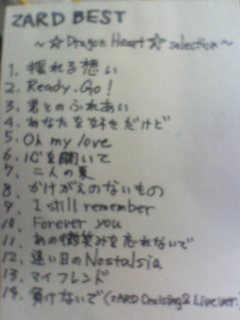 ZARD BEST
～☆Dragon Heart☆ selection～
1. 揺れる想い
2. Ready, Go!
3. 君とのふれあい
4. あなたを好きだけど
5. Oh my love
6. 心を開いて
7. 二人の夏
8. かけがえのないもの
9. I still remember
10. Forever you
11. あの微笑みを忘れないで
12. 遠い日のNostalgia
13. マイフレンド
14. 負けないで(ZARD Cruising & Live ver.)